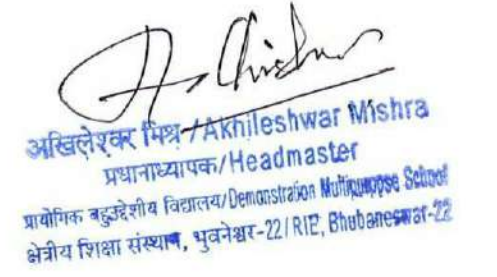 अखिलेश्वर मिश्र/Akhileshwar Mishra
प्रधानाध्यापक/Headmaster
प्रायोगिक बहुउद्देशीय विद्यालय/Demonstration Multipurpose School
क्षेत्रीय शिक्षा संस्थान, भुवनेश्वर-22/RIE, Bhubaneswar-22